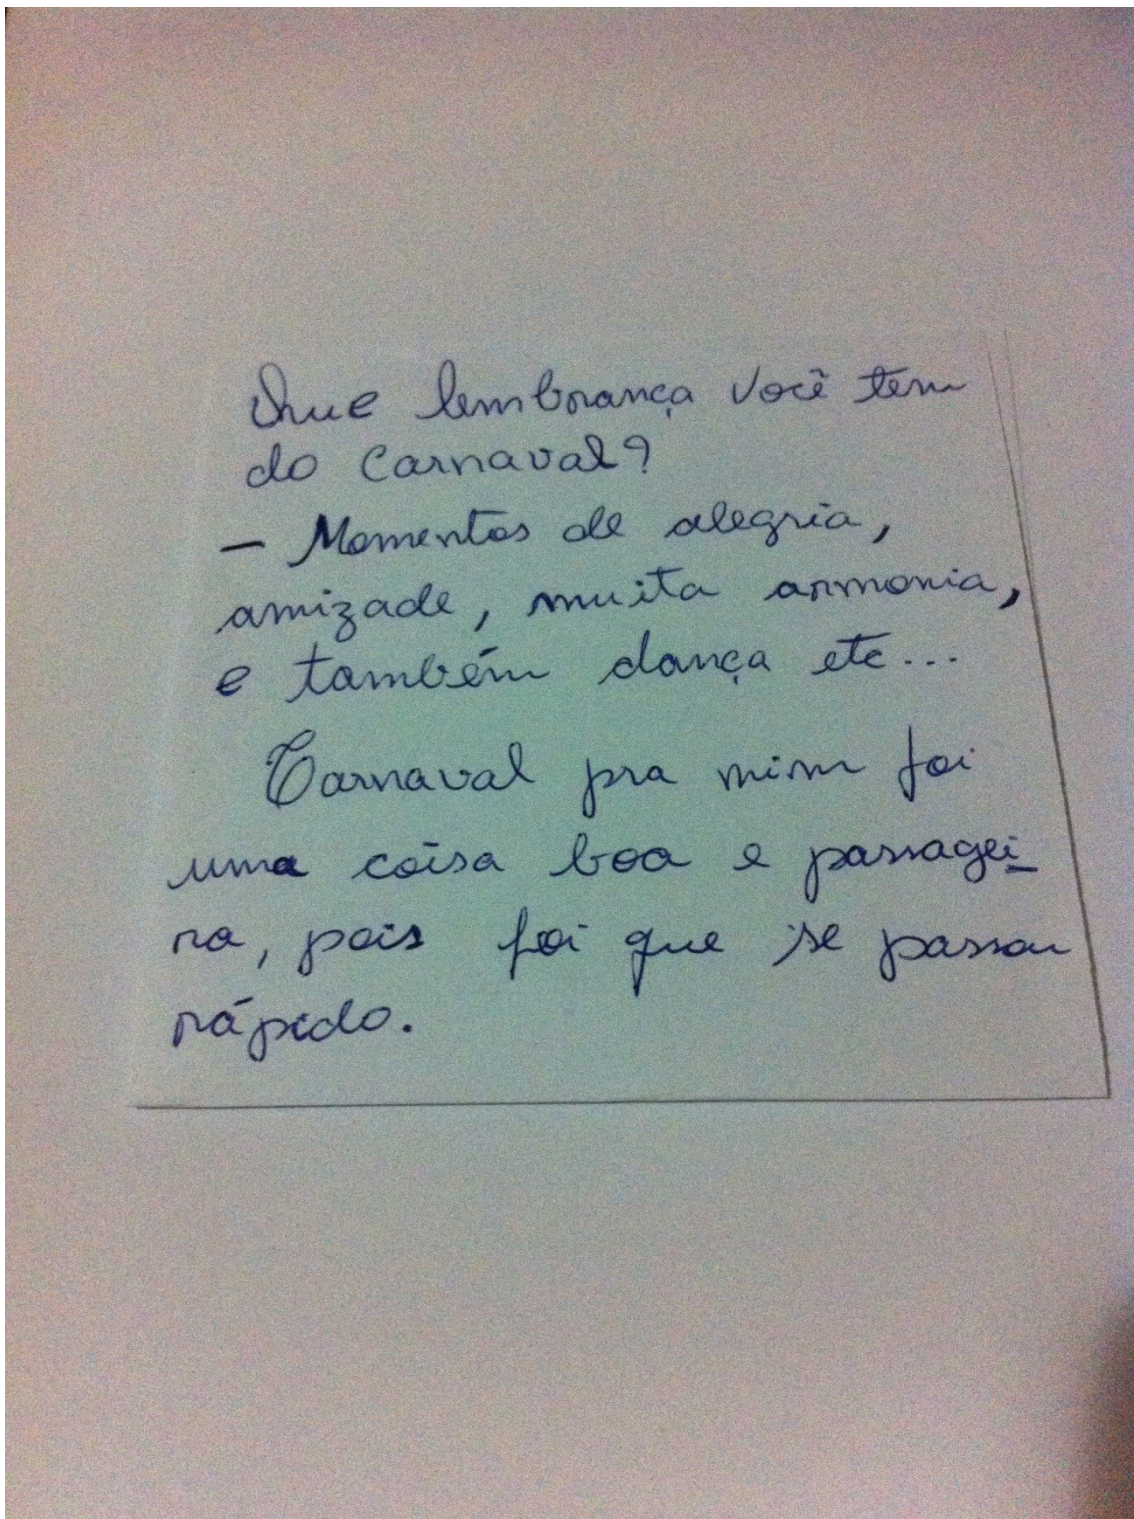 Que lembrança você tem
do Carnaval?
- Momentos de alegria,
amizade, muita armonia,
e também dança etc...
Carnaval pra mim foi
uma coisa boa e passagei
ra, pois foi que se passou
rápido.